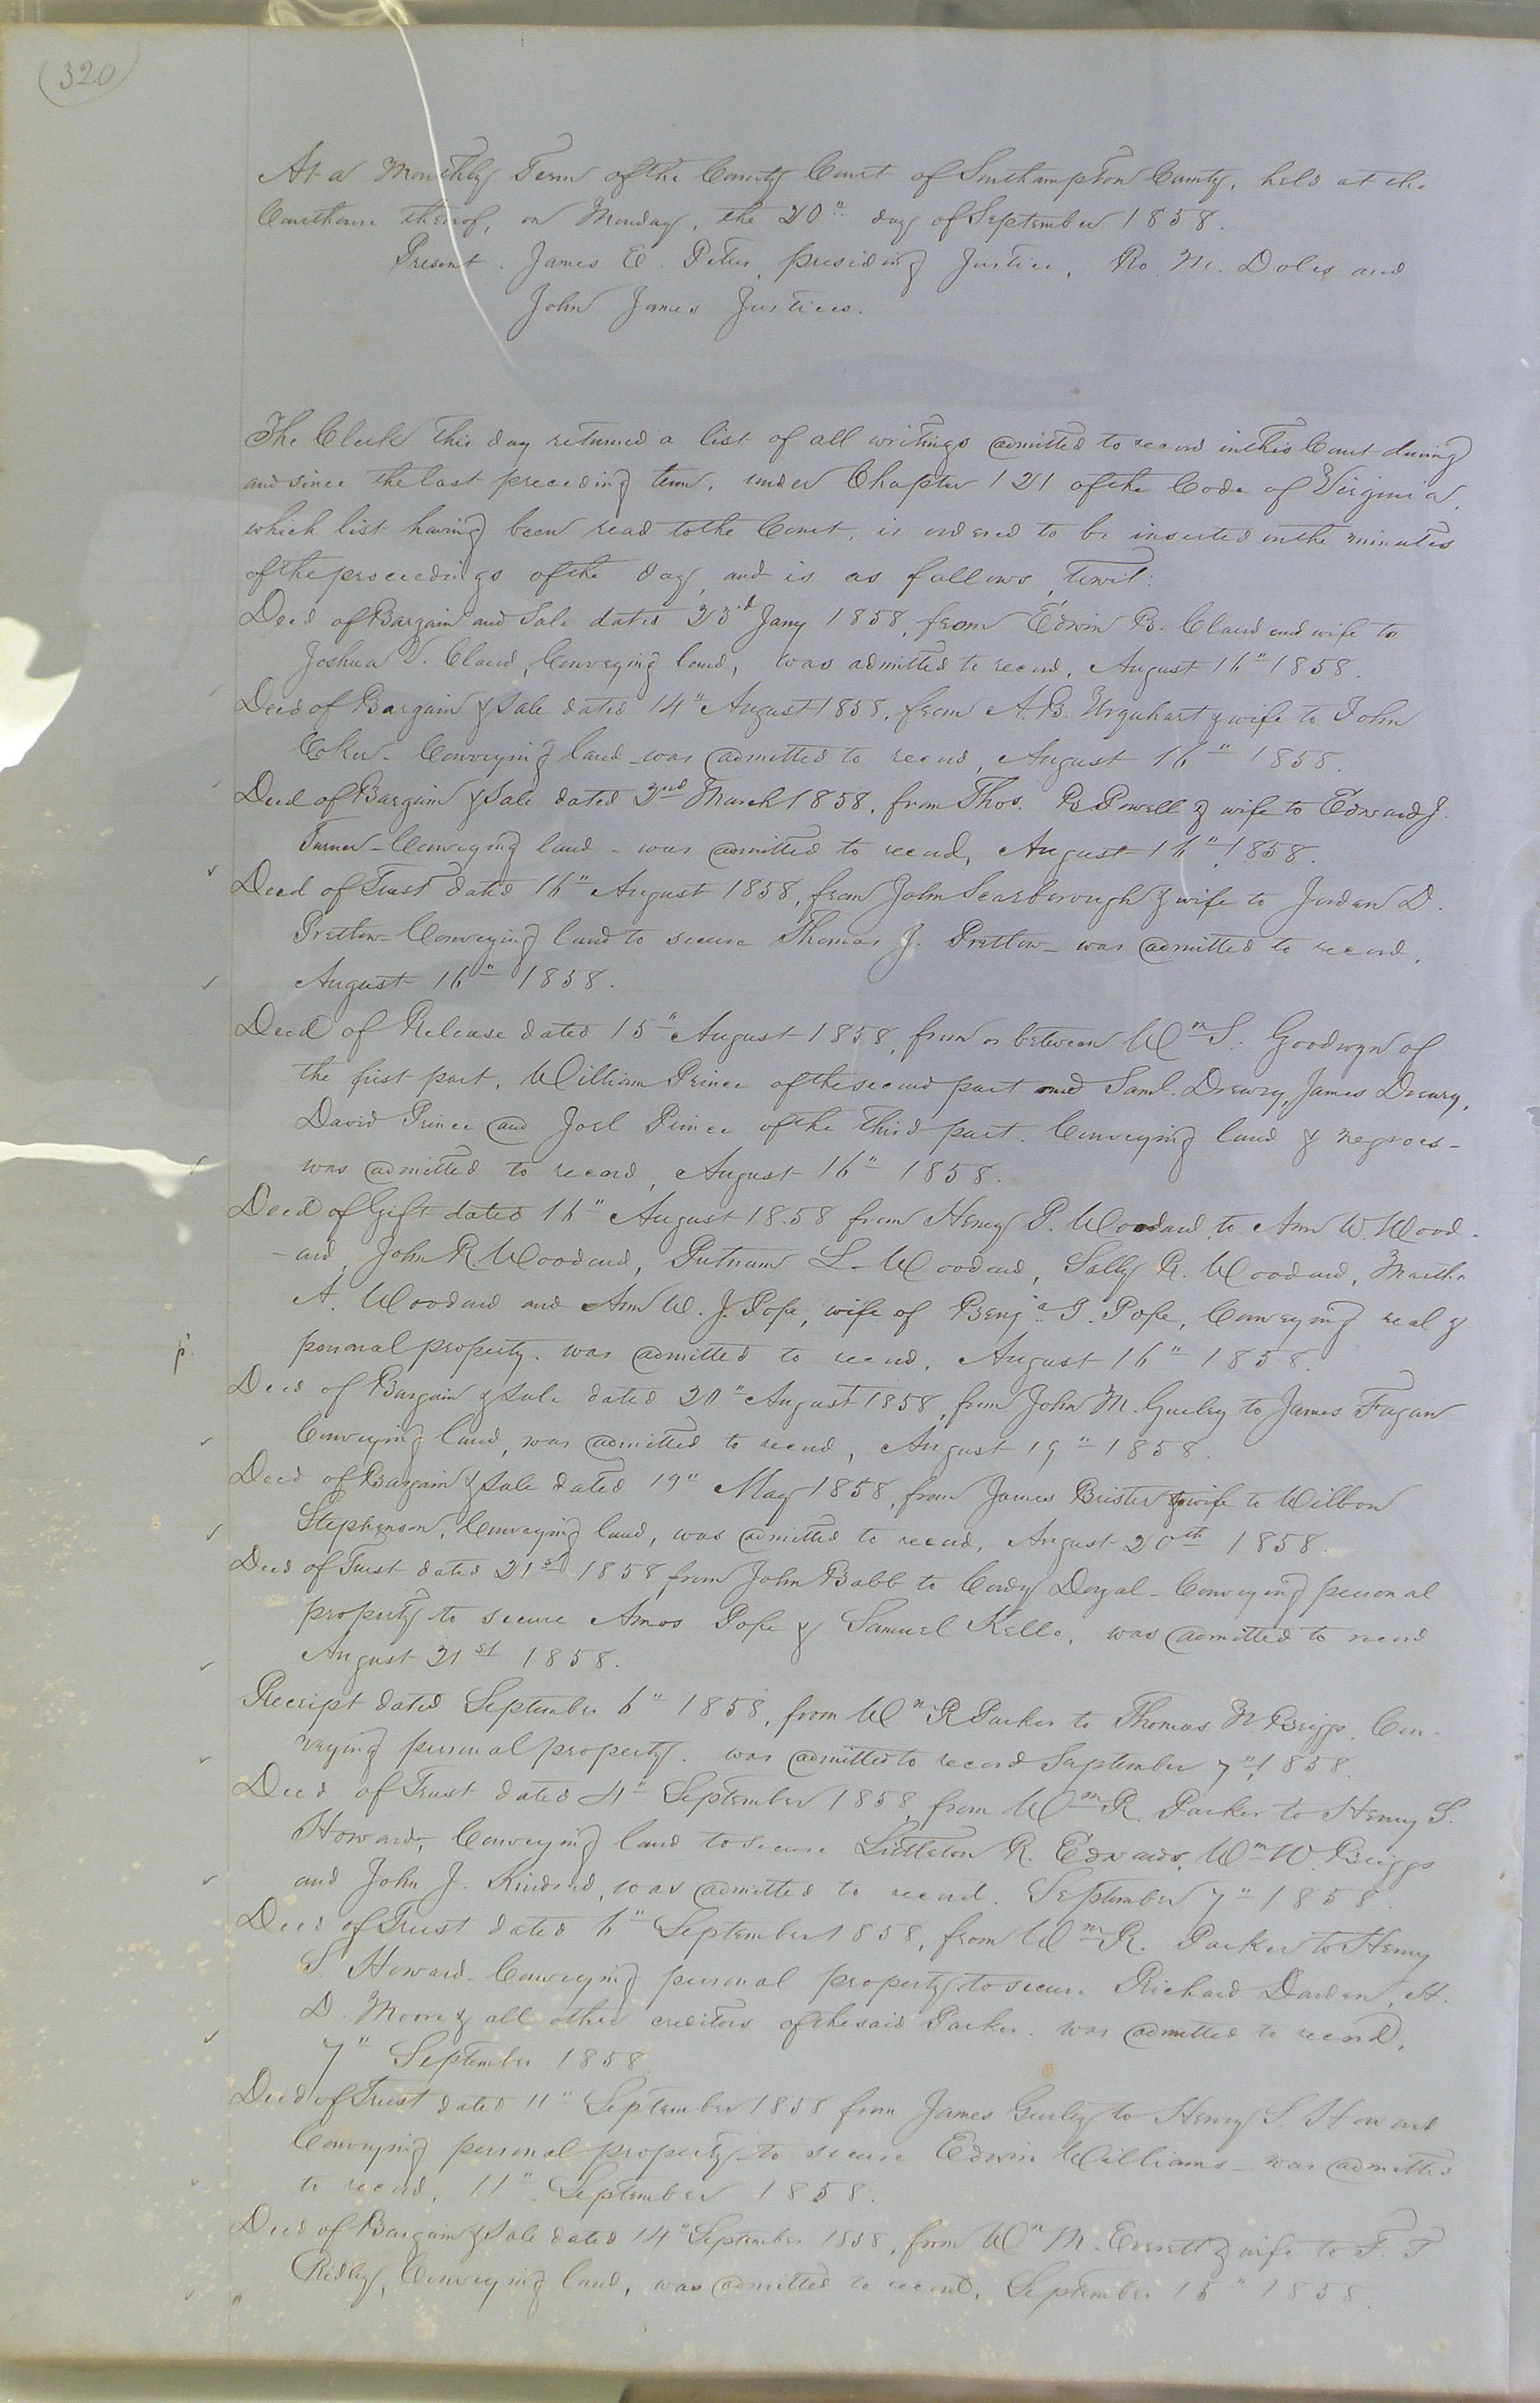 (320)
At a Monthly Term of the County Court of Southampton County, held at the
Courthouse thereof, on Monday, the 20" day of September 1858.
Present. James E. Peters, presiding Justice, Ro. M. Doles and
John James Justices.
The Clerk this day returned a list of all writings admitted to record in this Court during
and since the last preceding term, under Chapter 121 of the Code of Virginia,
which list having been read to the Court, is ordered to be inserted in the minutes
of the proceedings of the day, and is as follows, towit:
Deed of Bargain and Sale dated 23rd Jany 1858, from Edwin B. Claud and wife to
Joshua V. Claud, Conveying land, was admitted to record, August 16" 1858.
Deed of Bargain & Sale dated 14" August 1858, from A. B. Urquhart & wife to John
Coker - Conveying land - was admitted to record, August 16" 1858.
Deed of Bargain & Sale dated 2nd March 1858, from Thos. B. Powell & wife to Edward J.
Turner - Conveying land - was admitted to record, August 16", 1858.
Deed of Trust dated 16" August 1858, from John Scarborough & wife to Jordan D.
Pretlow - Conveying land to secure Thomas J. Pretlow - was admitted to record,
August 16" 1858.
Deed of Release dated 15" August 1858, from or between Wm S. Goodwyn of
the first part, William Prince of the second part and Saml. Drewry, James Drewry,
David Prince and Joel Prince of the third part. Conveying land & negroes -
was admitted to record, August 16" 1858.
Deed of Gift dated 16" August 1858 from Henry P. Woodard to Ann W. Wood-
-ard, John R. Woodard, Putnam L. Woodard, Sally R. Woodard, Martha
A. Woodard and Ann W. J. Pope, wife of Benja. I. Pope, Conveying real &
personal property. was admitted to record, August 16" 1858.
p.
Deed of Bargain & Sale dated 20" August 1858, from John M. Gurley to James Fagan
Conveying land, was admitted to record, August 19" 1858.
Deed of Bargain & Sale dated 19" May 1858, from James Brister & wife to Wilbon
Stephenson, Conveying land, was admitted to record, August 20th 1858.
Deed of Trust dated 21st 1858 from John Babb to Cordy Doyal - Conveying personal
property to secure Amos Pope & Samuel Kello, was admitted to record
August 21st 1858.
Receipt dated September 6" 1858, from Wm R Parker to Thomas N. Briggs. Con-
veying personal property. was admitted to record September 7", 1858.
Deed of Trust dated 4" September 1858, from Wm R. Parker to Henry S.
Howard, Conveying land to secure Littleton R. Edwards, Wm W. Briggs
and John J. Kindred, was admitted to record. September 7" 1858.
Deed of Trust dated 6" September 1858, from Wm R. Parker to Henry
S. Howard - Conveying personal property to secure Richard Darden, A.
D. Moore & all other creditors of the said Parker. was admitted to record,
7" September 1858
Deed of Trust dated 11" September 1858 from James Gurley to Henry S. Howard
Conveying personal property to secure Edwin Williams - was admitted
to record, 11" September 1858.
Deed of Bargain & Sale dated 14" September 1858, from Wm M. Everett & wife to F. T
Ridley, Conveying land, was admitted to record, September 15" 1858.